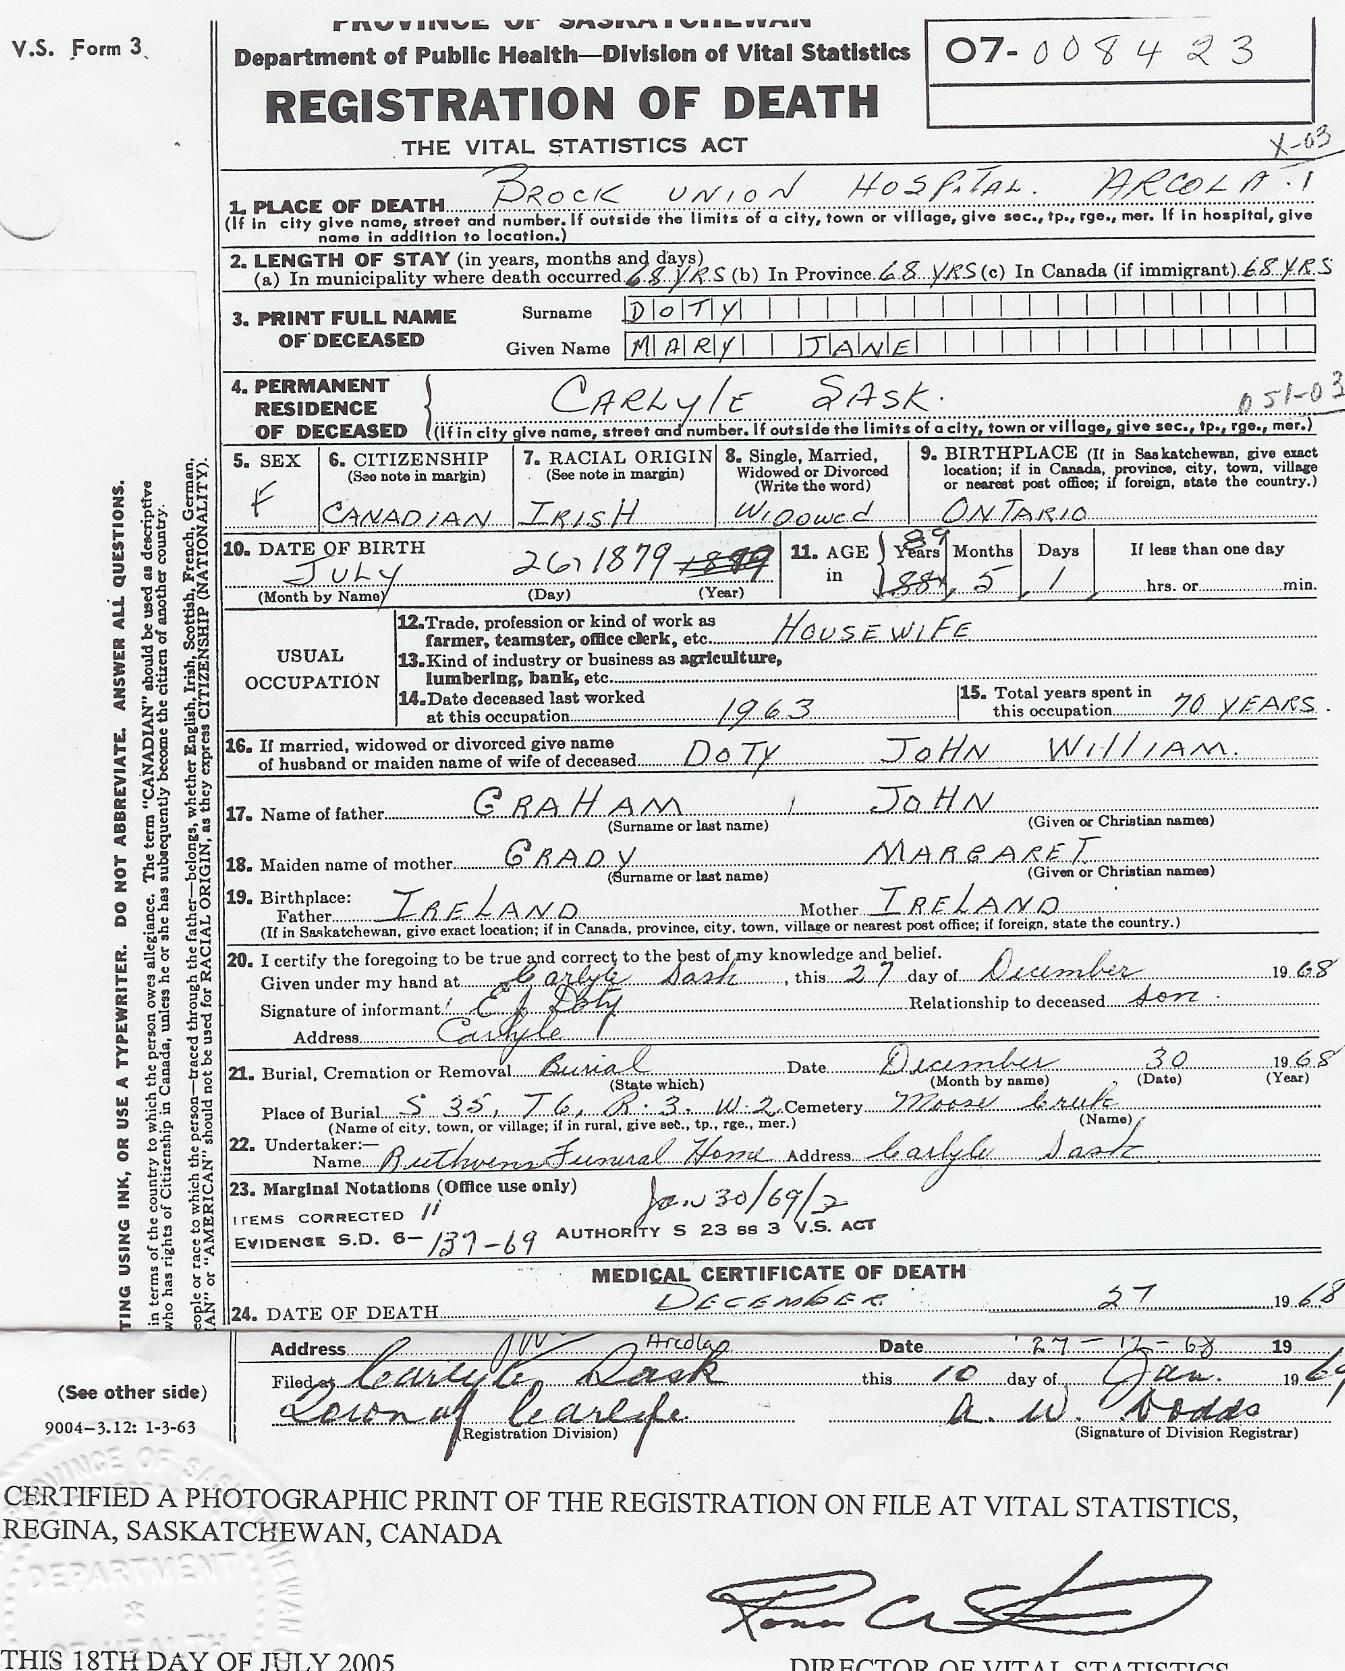 PROVINCE OF SASKATCHEWAN
V.S. Form 3
Department of Public Health—Division of Vital Statistics
07-008423
REGISTRATION OF DEATH
THE VITAL STATISTICS ACT
X-03
1. PLACE OF DEATH BROCK UNION HOSPITAL. ARCOLA.
(If in city give name, street and number. If outside the limits of a city, town or village, give sec., tp., rge., mer. If in hospital, give
name in addition to location.)
2. LENGTH OF STAY (in years, months and days)
(a) In municipality where death occurred 68 YRS (b) In Province 68 YRS (c) In Canada (if immigrant) 68 YRS
3. PRINT FULL NAME OF DECEASED
Surname DOTY
Given Name MARY JANE
4. PERMANENT RESIDENCE OF DECEASED
CARLYLE SASK.
051-03
(If in city give name, street and number. If outside the limits of a city, town or village, give sec., tp., rge., mer.)
5. SEX
F
6. CITIZENSHIP
(See note in margin)
CANADIAN
7. RACIAL ORIGIN
(See note in margin)
IRISH
8. Single, Married,
Widowed or Divorced
(Write the word)
WIDOWED
9. BIRTHPLACE (If in Saskatchewan, give exact
location; if in Canada, province, city, town, village
or nearest post office; if foreign, state the country.)
ONTARIO
10. DATE OF BIRTH
JULY 26, 1879
(Month by Name) (Day) (Year)
11. AGE in
Years 89 88
Months 5
Days 1
If less than one day
hrs. or min.
USUAL OCCUPATION
12. Trade, profession or kind of work as
farmer, teamster, office clerk, etc. HOUSEWIFE
13. Kind of industry or business as agriculture,
lumbering, bank, etc.
14. Date deceased last worked
at this occupation 1963
15. Total years spent in
this occupation 70 YEARS.
16. If married, widowed or divorced give name
of husband or maiden name of wife of deceased DOTY JOHN WILLIAM.
17. Name of father GRAHAM, JOHN
(Surname or last name) (Given or Christian names)
18. Maiden name of mother GRADY MARGARET
(Surname or last name) (Given or Christian names)
19. Birthplace:
Father IRELAND Mother IRELAND
(If in Saskatchewan, give exact location; if in Canada, province, city, town, village or nearest post office; if foreign, state the country.)
20. I certify the foregoing to be true and correct to the best of my knowledge and belief.
Given under my hand at Carlyle Sask, this 27 day of December 1968
Signature of informant E J Doty Relationship to deceased son.
Address Carlyle
21. Burial, Cremation or Removal Burial Date December 30 1968
(State which) (Month by name) (Date) (Year)
Place of Burial S 35, T6, R.3. W.2. Cemetery Moose Creek
(Name of city, town, or village; if in rural, give sec., tp., rge., mer.) (Name)
22. Undertaker:—
Name Ruthvens Funeral Home Address Carlyle Sask
23. Marginal Notations (Office use only) Jan 30/69/
ITEMS CORRECTED 11
EVIDENCE S.D. 6-137-69 AUTHORITY S 23 SS 3 V.S. ACT
MEDICAL CERTIFICATE OF DEATH
24. DATE OF DEATH DECEMBER 27 1968
Address Arcola Date 27-12-68 19
Filed at Carlyle Sask this 10 day of Jan. 1969
Town of Carlyle A. W. Dodds
(Registration Division) (Signature of Division Registrar)
TING USING INK, OR USE A TYPEWRITER. DO NOT ABBREVIATE. ANSWER ALL QUESTIONS.
in terms of the country to which the person owes allegiance. The term "CANADIAN" should be used as descriptive
who has rights of Citizenship in Canada, unless he or she has subsequently become the citizen of another country.
eople or race to which the person—traced through the father—belongs, whether English, Irish, Scottish, French, German,
AN" or "AMERICAN" should not be used for RACIAL ORIGIN, as they express CITIZENSHIP (NATIONALITY).
(See other side)
9004-3.12: 1-3-63
PROVINCE OF SASKATCHEWAN
DEPARTMENT
OF HEALTH
CERTIFIED A PHOTOGRAPHIC PRINT OF THE REGISTRATION ON FILE AT VITAL STATISTICS,
REGINA, SASKATCHEWAN, CANADA
THIS 18TH DAY OF JULY 2005
DIRECTOR OF VITAL STATISTICS